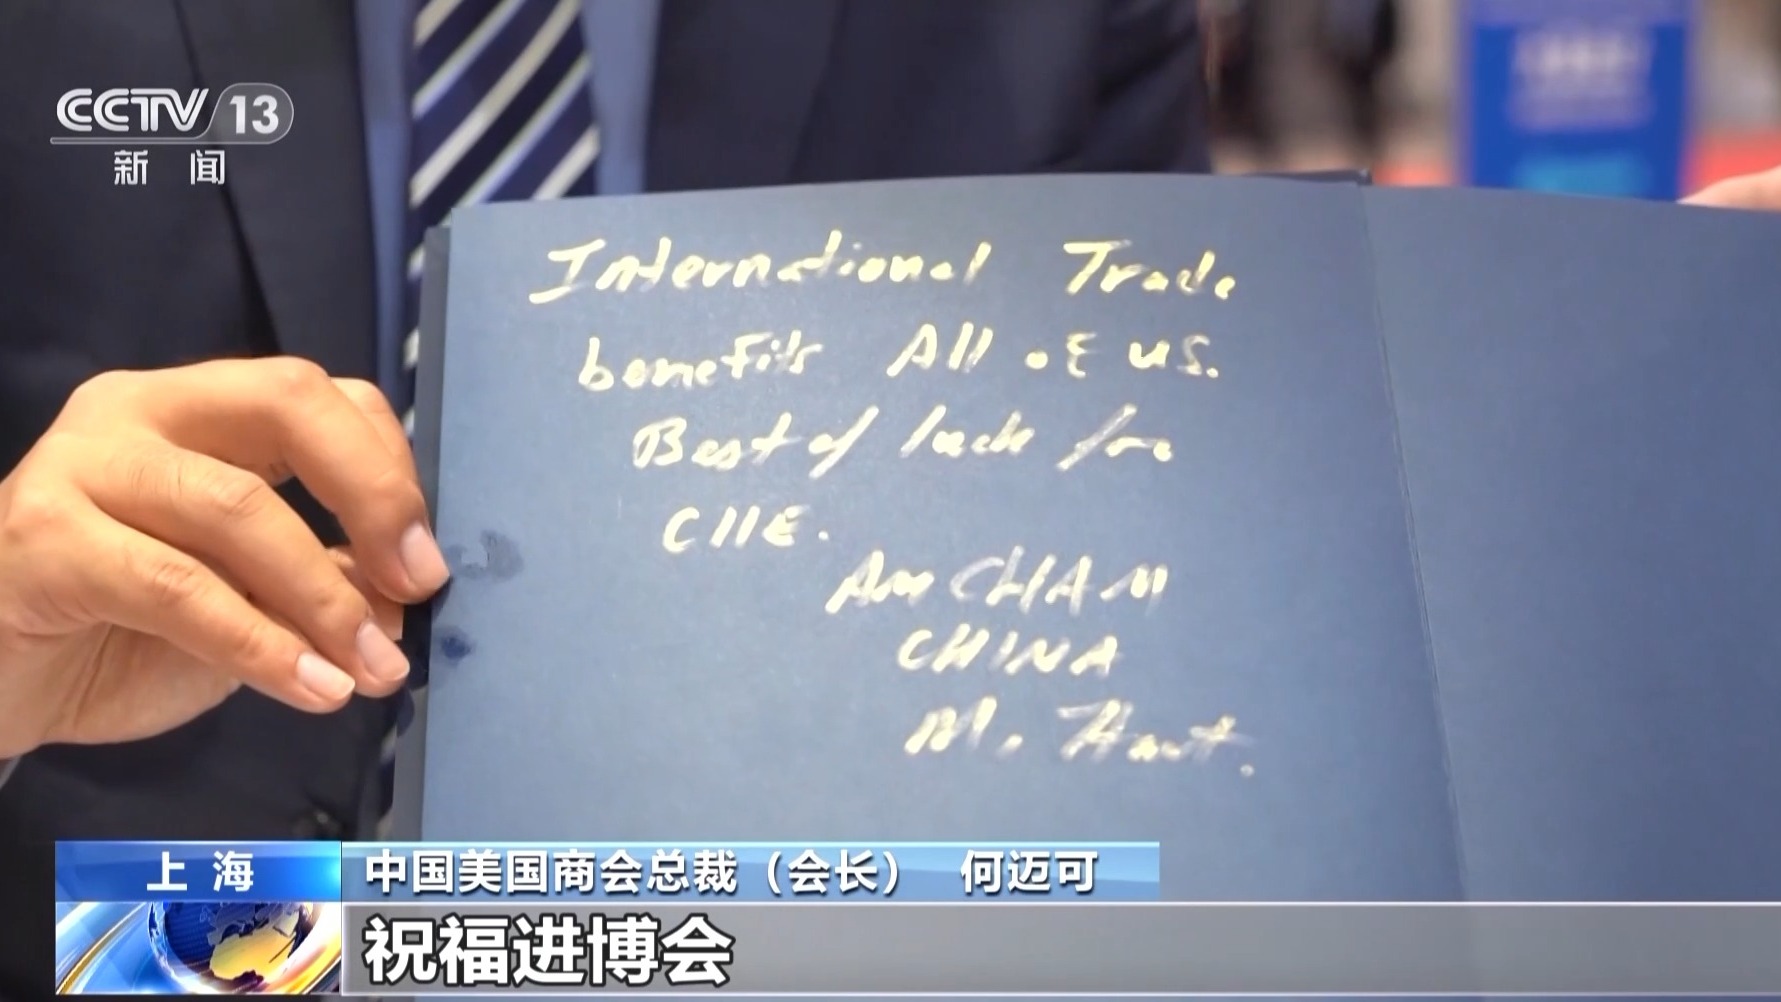 CCTV 13
新闻
International Trade
benefits All of us.
Best of luck for
CIIE.
AmCHAM
CHINA
M. Hart.
上海
中国美国商会总裁（会长） 何迈可
祝福进博会